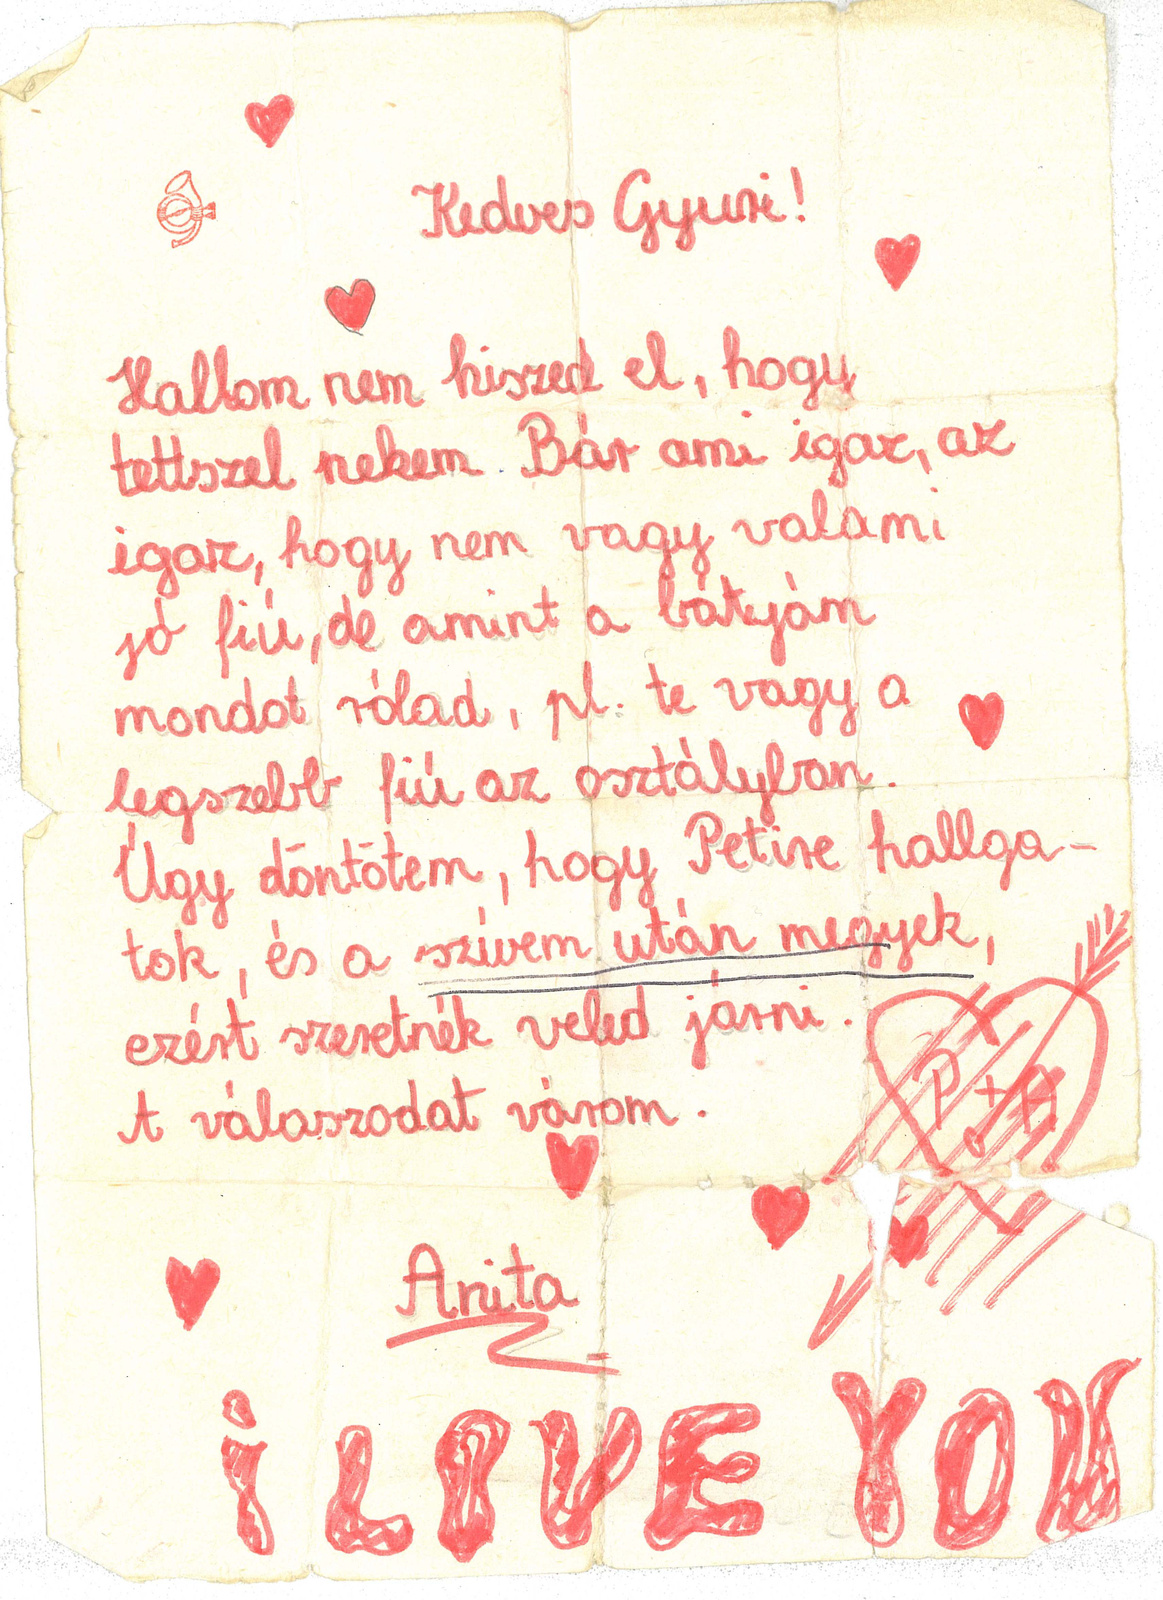 Kedves Gyuri!
Hallom nem hiszed el, hogy
tettszel nekem. Bár ami igaz, az
igaz, hogy nem vagy valami
jó fiú, de amint a bátyjám
mondot rólad, pl. te vagy a
legszebb fiú az osztályban.
Úgy döntötem, hogy Petire hallga-
tok, és a szívem után megyek,
ezért szeretnék veled járni.
A válaszodat várom.
P+A
Anita
i LOVE YOU